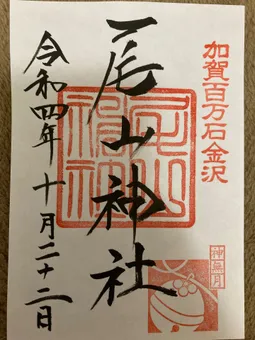 加賀百万石金沢
尾山神社
令和四年十月二十二日
尾山神社
神無月